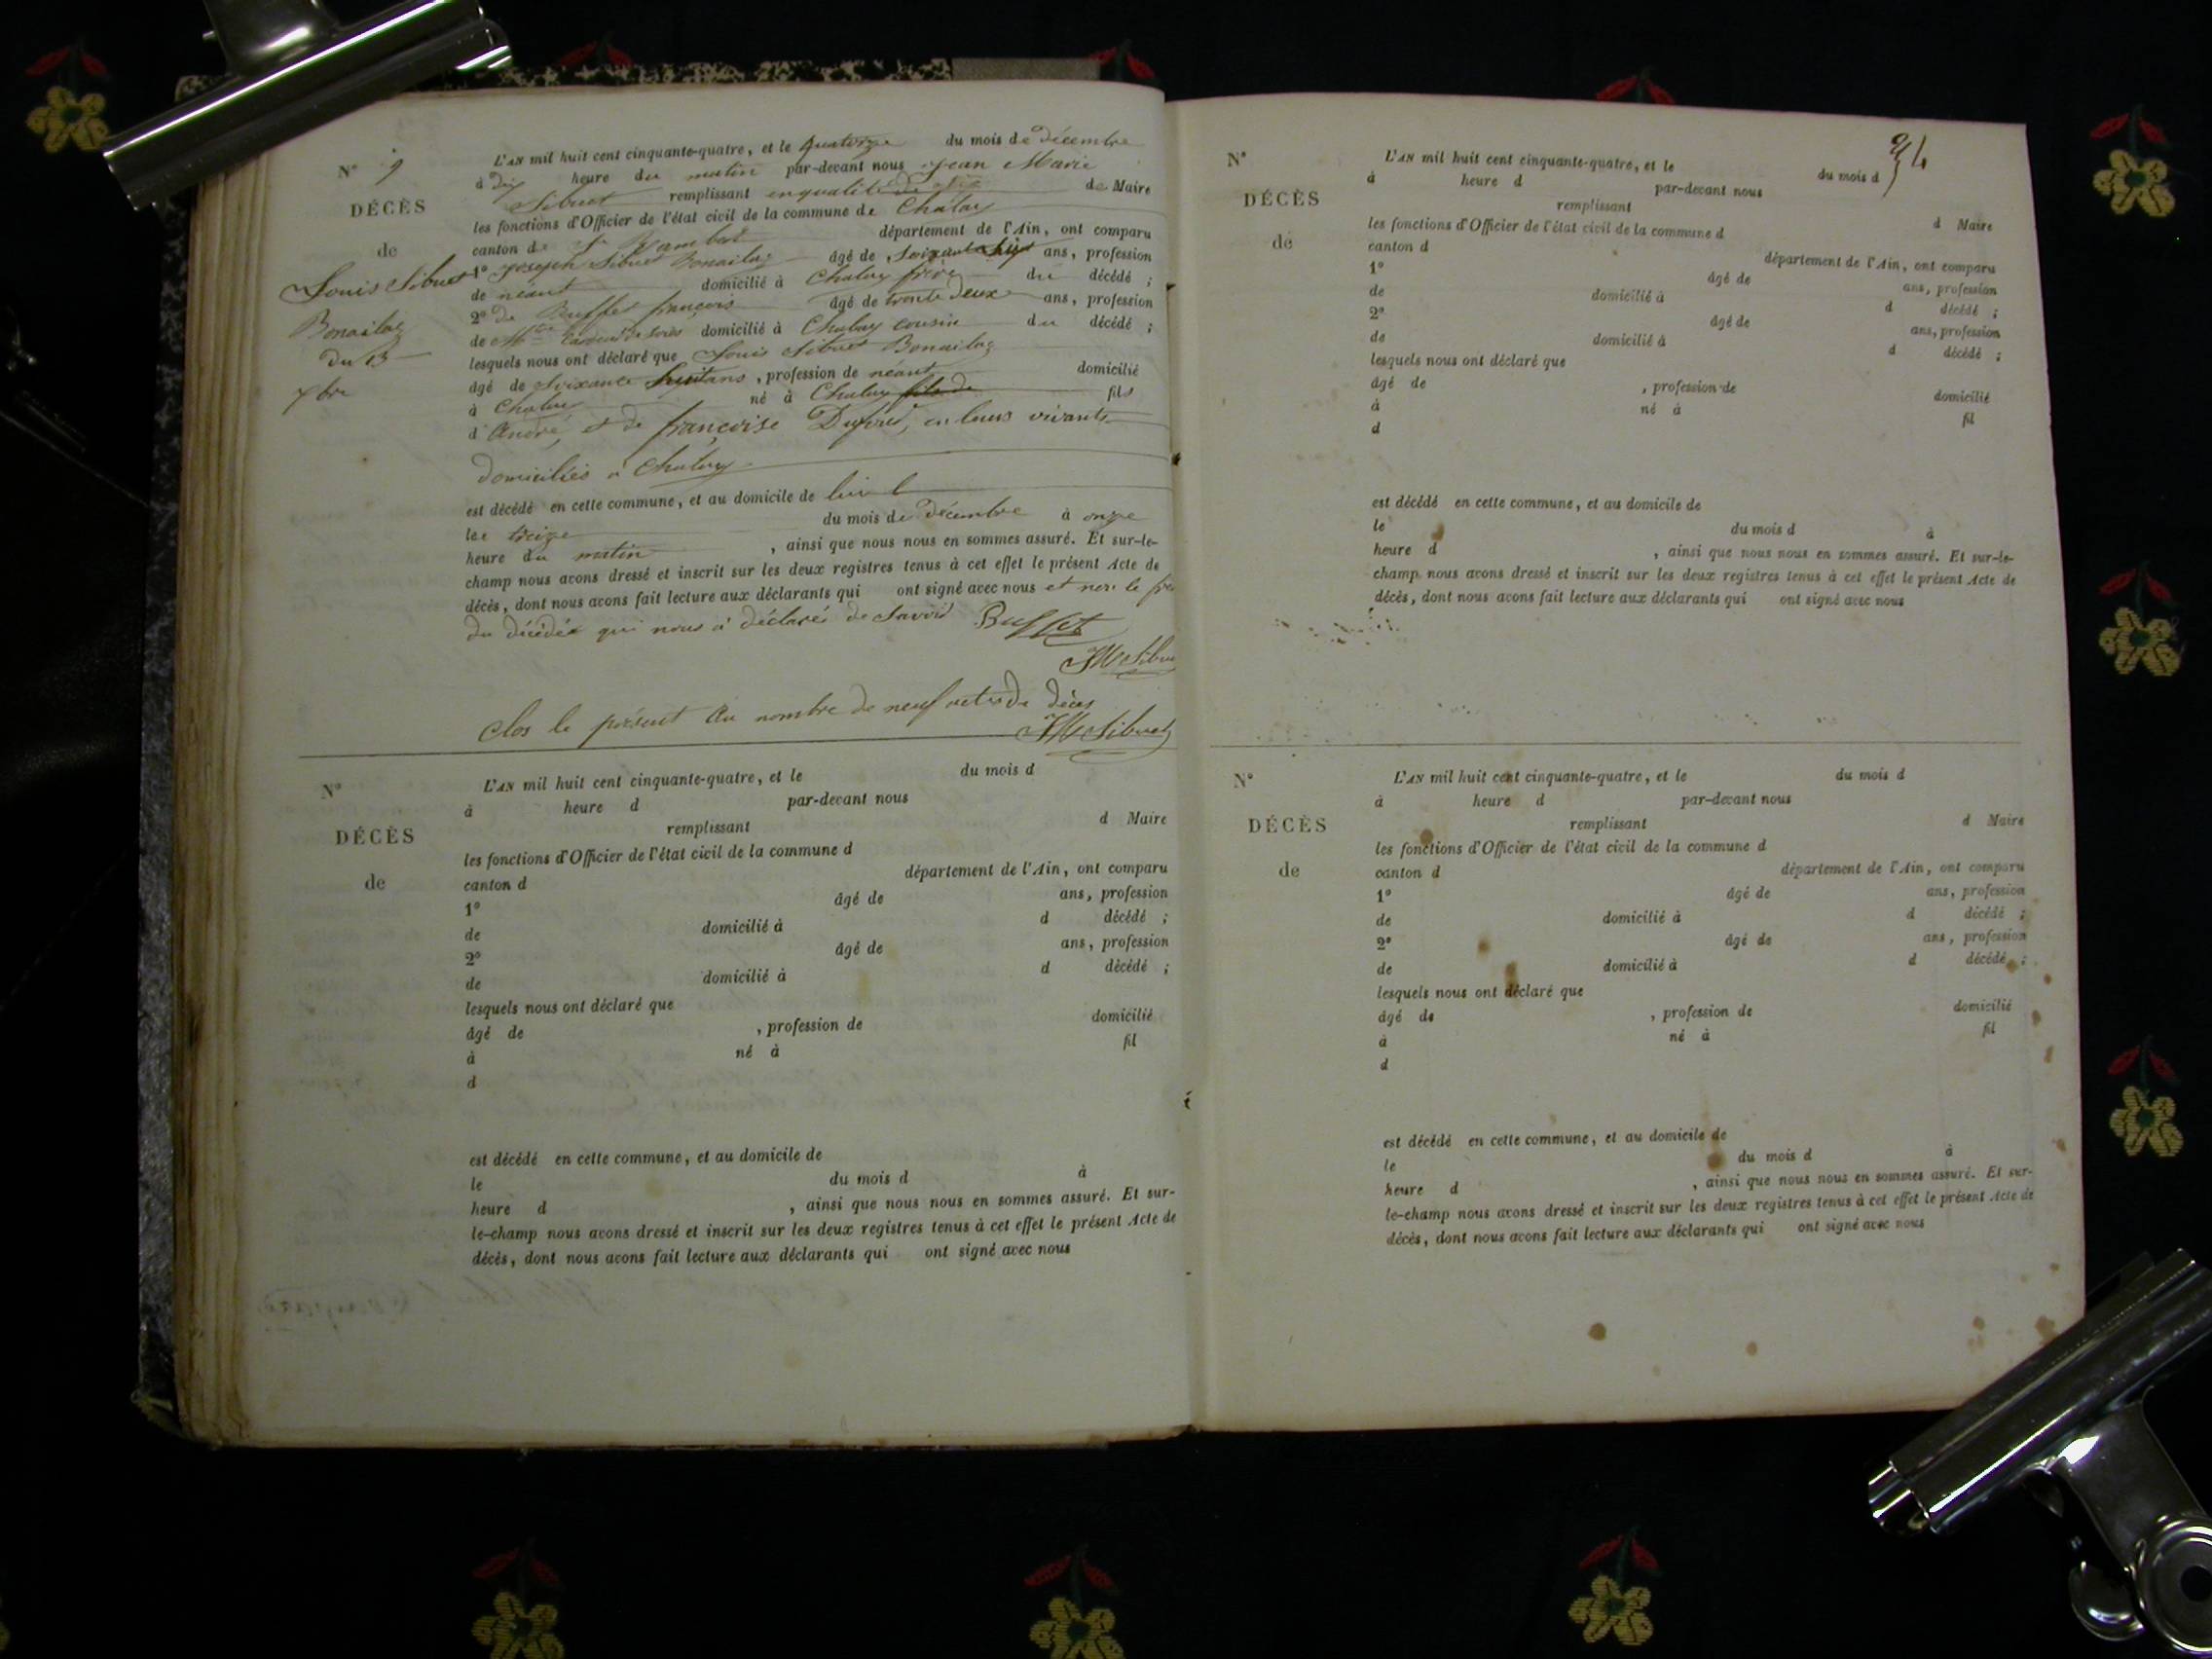 N° 9
DÉCÈS
de
Louis Sibuet
Bonailaz
du 13
xbre
L'AN mil huit cent cinquante-quatre, et le quatorze du mois de décembre
à dix heure du matin par-devant nous Jean Marie
Sibuet remplissant en qualité de de Maire
les fonctions d'Officier de l'état civil de la commune de Chaley
canton de St Rambert département de l'Ain, ont comparu
1° Joseph Sibuet Bonailaz âgé de Soixante ans, profession
de néant domicilié à Chaley frère du décédé ;
2° de Buffet françois âgé de trente deux ans, profession
de domicilié à Chaley cousin du décédé ;
lesquels nous ont déclaré que Louis Sibuet Bonailaz
âgé de Soixante huit ans, profession de néant domicilié
à Chaley né à Chaley fils de fils
d'André, et de françoise en leurs vivants
domiciliés à Chaley
est décédé en cette commune, et au domicile de lui
le treize du mois de décembre à onze
heure du matin, ainsi que nous nous en sommes assuré. Et sur-le-
champ nous avons dressé et inscrit sur les deux registres tenus à cet effet le présent Acte de
décès, dont nous avons fait lecture aux déclarants qui ont signé avec nous et non le
du décédé qui nous a déclaré de Savoir Buffet
JM Sibuet
Clos le présent Au nombre de neuf actes de décès
JM Sibuet
N°
DÉCÈS
de
L'AN mil huit cent cinquante-quatre, et le du mois d
à heure d par-devant nous
remplissant d Maire
les fonctions d'Officier de l'état civil de la commune d
canton d département de l'Ain, ont comparu
1° âgé de ans, profession
de domicilié à d décédé ;
2° âgé de ans, profession
de domicilié à d décédé ;
lesquels nous ont déclaré que
âgé de , profession de domicilié
à né à fil
d
est décédé en cette commune, et au domicile de
le du mois d à
heure d , ainsi que nous nous en sommes assuré. Et sur-
le-champ nous avons dressé et inscrit sur les deux registres tenus à cet effet le présent Acte de
décès, dont nous avons fait lecture aux déclarants qui ont signé avec nous
N°
DÉCÈS
de
L'AN mil huit cent cinquante-quatre, et le du mois d
à heure d par-devant nous
remplissant d Maire
les fonctions d'Officier de l'état civil de la commune d
canton d département de l'Ain, ont comparu
1° âgé de ans, profession
de domicilié à d décédé ;
2° âgé de ans, profession
de domicilié à d décédé ;
lesquels nous ont déclaré que
âgé de , profession de domicilié
à né à fil
d
est décédé en cette commune, et au domicile de
le du mois d à
heure d , ainsi que nous nous en sommes assuré. Et sur-le-
champ nous avons dressé et inscrit sur les deux registres tenus à cet effet le présent Acte de
décès, dont nous avons fait lecture aux déclarants qui ont signé avec nous
N°
DÉCÈS
de
L'AN mil huit cent cinquante-quatre, et le du mois d
à heure d par-devant nous
remplissant d Maire
les fonctions d'Officier de l'état civil de la commune d
canton d département de l'Ain, ont comparu
1° âgé de ans, profession
de domicilié à d décédé ;
2° âgé de ans, profession
de domicilié à d décédé ;
lesquels nous ont déclaré que
âgé de , profession de domicilié
à né à fil
d
est décédé en cette commune, et au domicile de
le du mois d à
heure d , ainsi que nous nous en sommes assuré. Et sur-
le-champ nous avons dressé et inscrit sur les deux registres tenus à cet effet le présent Acte de
décès, dont nous avons fait lecture aux déclarants qui ont signé avec nous